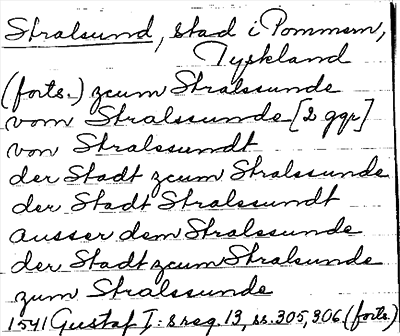 Stralsund, stad i Pommern,
Tyskland
(forts.) zcum Stralssunde
vom Stralssunde [2 ggr]
von Stralssundt
der Stadt zcum Stralssunde
der Stadt Stralssundt
ausser dem Stralssunde
der Stadt zcum Stralsunde
zum Stralssunde
1541 Gustaf I: s reg. 13, ss. 305, 306 (forts.)